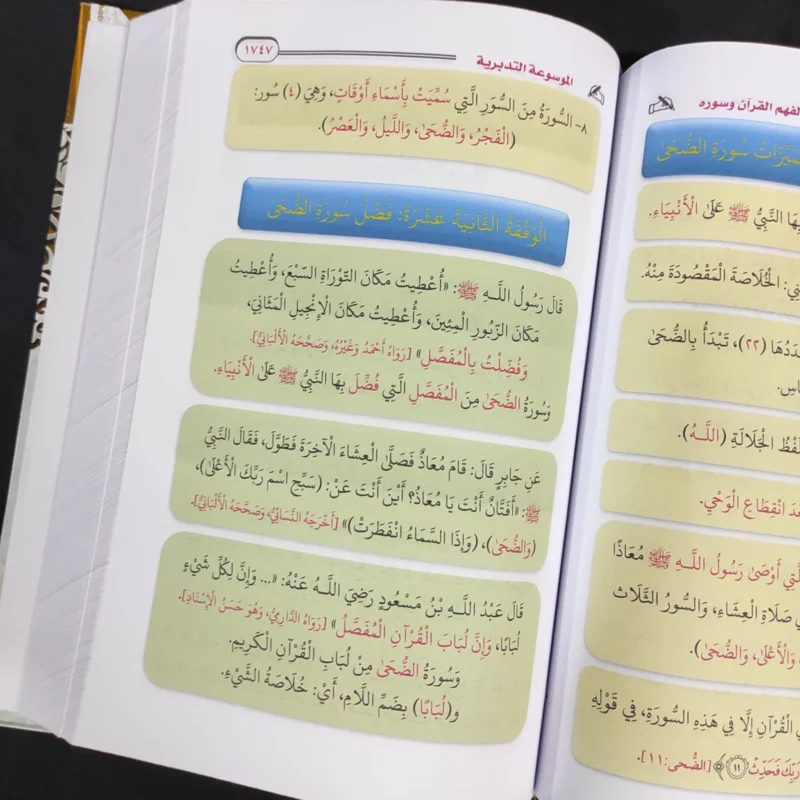 لفهم القرآن وسوره
مميزات سورة الضحى
بِهَا النَّبِيُّ ﷺ عَلَى الْأَنْبِيَاءِ.
الْخُلَاصَةَ الْمَقْصُودَةَ مِنْهُ.
(٢٢)، تَبْدَأُ بِالضُّحَىٰ
لَفْظُ الْجَلَالَةِ (اللَّـهُ).
انْقِطَاعِ الْوَحْيِ.
أَوْصَىٰ رَسُولُ اللَّـهِ ﷺ مُعَاذًا
صَلَاةِ الْعِشَاءِ، وَالسُّورُ الثَّلَاثُ
وَالْأَعْلَىٰ، وَالضُّحَىٰ).
الْقُرْآنِ إِلَّا فِي هَذِهِ السُّورَةِ، فِي قَوْلِهِ
رَبِّكَ فَحَدِّثْ ١١﴾ [الضُّحى:١١].
الموسوعة التدبرية
١٧٤٧
٨- السُّورَةُ مِنَ السُّوَرِ الَّتِي سُمِّيَتْ بِأَسْمَاءِ أَوْقَاتٍ، وَهِيَ (٤) سُوَر:
(الْفَجْرُ، وَالضُّحَىٰ، وَاللَّيْلُ، وَالْعَصْرُ).
الْوَقْفَةُ الثَّانِيَةَ عَشْرَةَ: فَضْلُ سُورَةِ الضُّحَىٰ
قَالَ رَسُولُ اللَّـهِ ﷺ: «أُعْطِيتُ مَكَانَ التَّوْرَاةِ السَّبْعَ، وَأُعْطِيتُ
مَكَانَ الزَّبُورِ الْمِئِينَ، وَأُعْطِيتُ مَكَانَ الْإِنْجِيلِ الْمَثَانِيَ،
وَفُضِّلْتُ بِالْمُفَصَّلِ» [رَوَاهُ أَحْمَدُ وَغَيْرُهُ، وَصَحَّحَهُ الْأَلْبَانِيُّ].
وَسُورَةُ الضُّحَىٰ مِنَ الْمُفَصَّلِ الَّتِي فُضِّلَ بِهَا النَّبِيُّ ﷺ عَلَى الْأَنْبِيَاءِ.
عَنِ جَابِرٍ قَالَ: قَامَ مُعَاذٌ فَصَلَّى الْعِشَاءَ الْآخِرَةَ فَطَوَّلَ، فَقَالَ النَّبِيُّ
ﷺ: «أَفَتَّانٌ أَنْتَ يَا مُعَاذُ؟ أَيْنَ أَنْتَ عَنْ: (سَبِّحِ اسْمَ رَبِّكَ الْأَعْلَىٰ)،
(وَالضُّحَىٰ)، (وَإِذَا السَّمَاءُ انْفَطَرَتْ)» [أَخْرَجَهُ النَّسَائِيُّ، وَصَحَّحَهُ الْأَلْبَانِيُّ].
قَالَ عَبْدُ اللَّـهِ بْنُ مَسْعُودٍ رَضِيَ اللَّـهُ عَنْهُ: «... وَإِنَّ لِكُلِّ شَيْءٍ
لُبَابًا، وَإِنَّ لُبَابَ الْقُرْآنِ الْمُفَصَّلُ» [رَوَاهُ الدَّارِمِيُّ، وَهُوَ حَسَنُ الْإِسْنَادِ].
وَسُورَةُ الضُّحَىٰ مِنْ لُبَابِ الْقُرْآنِ الْكَرِيمِ.
و(لُبَابًا) بِضَمِّ اللَّامِ، أَيْ: خُلَاصَةُ الشَّيْءِ.